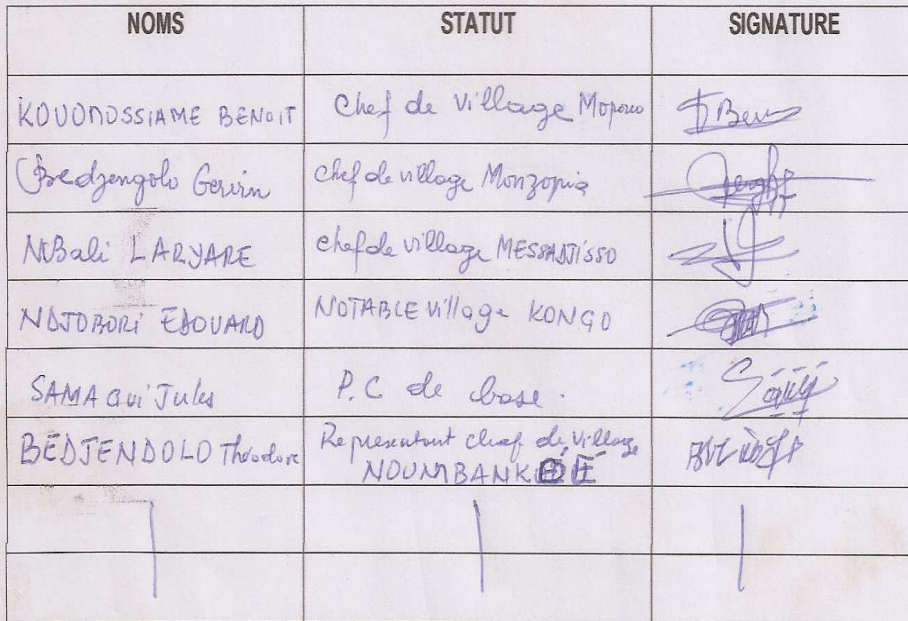 NOMS STATUT SIGNATURE
KOUOMOSSIAME BENOIT Chef de village Mopouo
Bedjengolo Gervin chef de village Monzopia
MBali LARYARE chef de village MESSADJISSO
NDJOBORI EDOUARD NOTABLE village KONGO
SAMA Qui Jules P.C de base.
BEDJENDOLO Théodore Representant chef de village
NOUMBANK